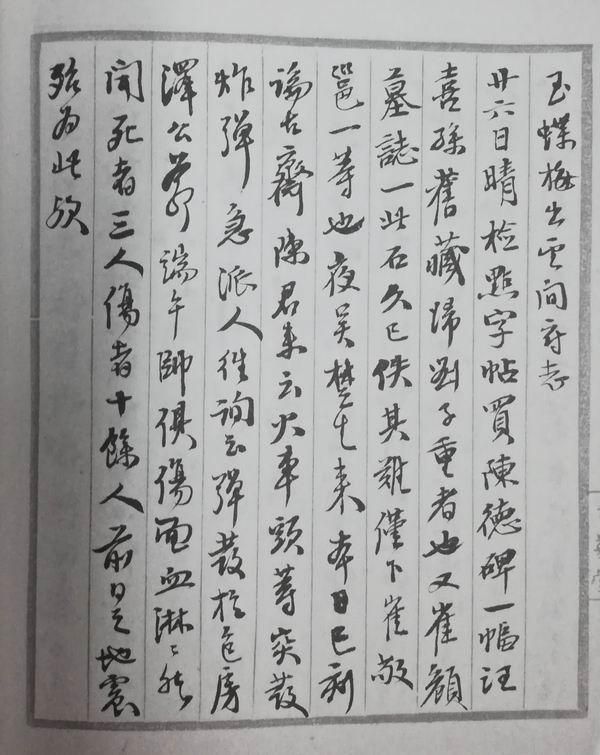 玉蝶梅出雲间府志
廿六日晴检點字帖買陳德碑一幅汪
喜孫舊藏歸劉子重者也又崔頠
墓誌一此石久已佚其難僅下崔敬
邕一等也夜吴楚生来本日巳刻
論古齋陳君来云火車頭等突發
炸彈急派人往詢云彈發於包房
澤公端午帥俱傷面血淋〻然
聞死者三人傷者十餘人前日之地震
殆为此欤